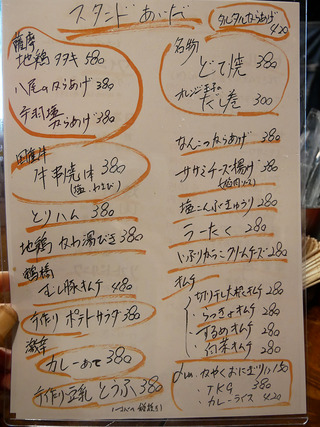 スタンドあいだ
タルタルからあげ 420
薩摩
地鶏タタキ 580
八尾のからあげ 380
手羽塩からあげ 380
牛串焼 1本 380
とりハム 380
地鶏なわ湯びき 380
鶴橋
むし豚キムチ 480
手作りポテトサラダ 380
激辛
カレーあて 380
手作り豆乳とうふ 380
名物
どて焼 380
オレンジ玉子の
だし巻 300
なんこつからあげ 380
ササミチーズ揚げ 380
塩こんぶきゅうり 280
ラーたく 280
いぶりがっこクリームチーズ 280
キムチ
切り干し大根キムチ 280
らっきょキムチ 280
するめキムチ 280
白菜キムチ 280
かやくおにぎり 150
TKG 380
カレーライス 420